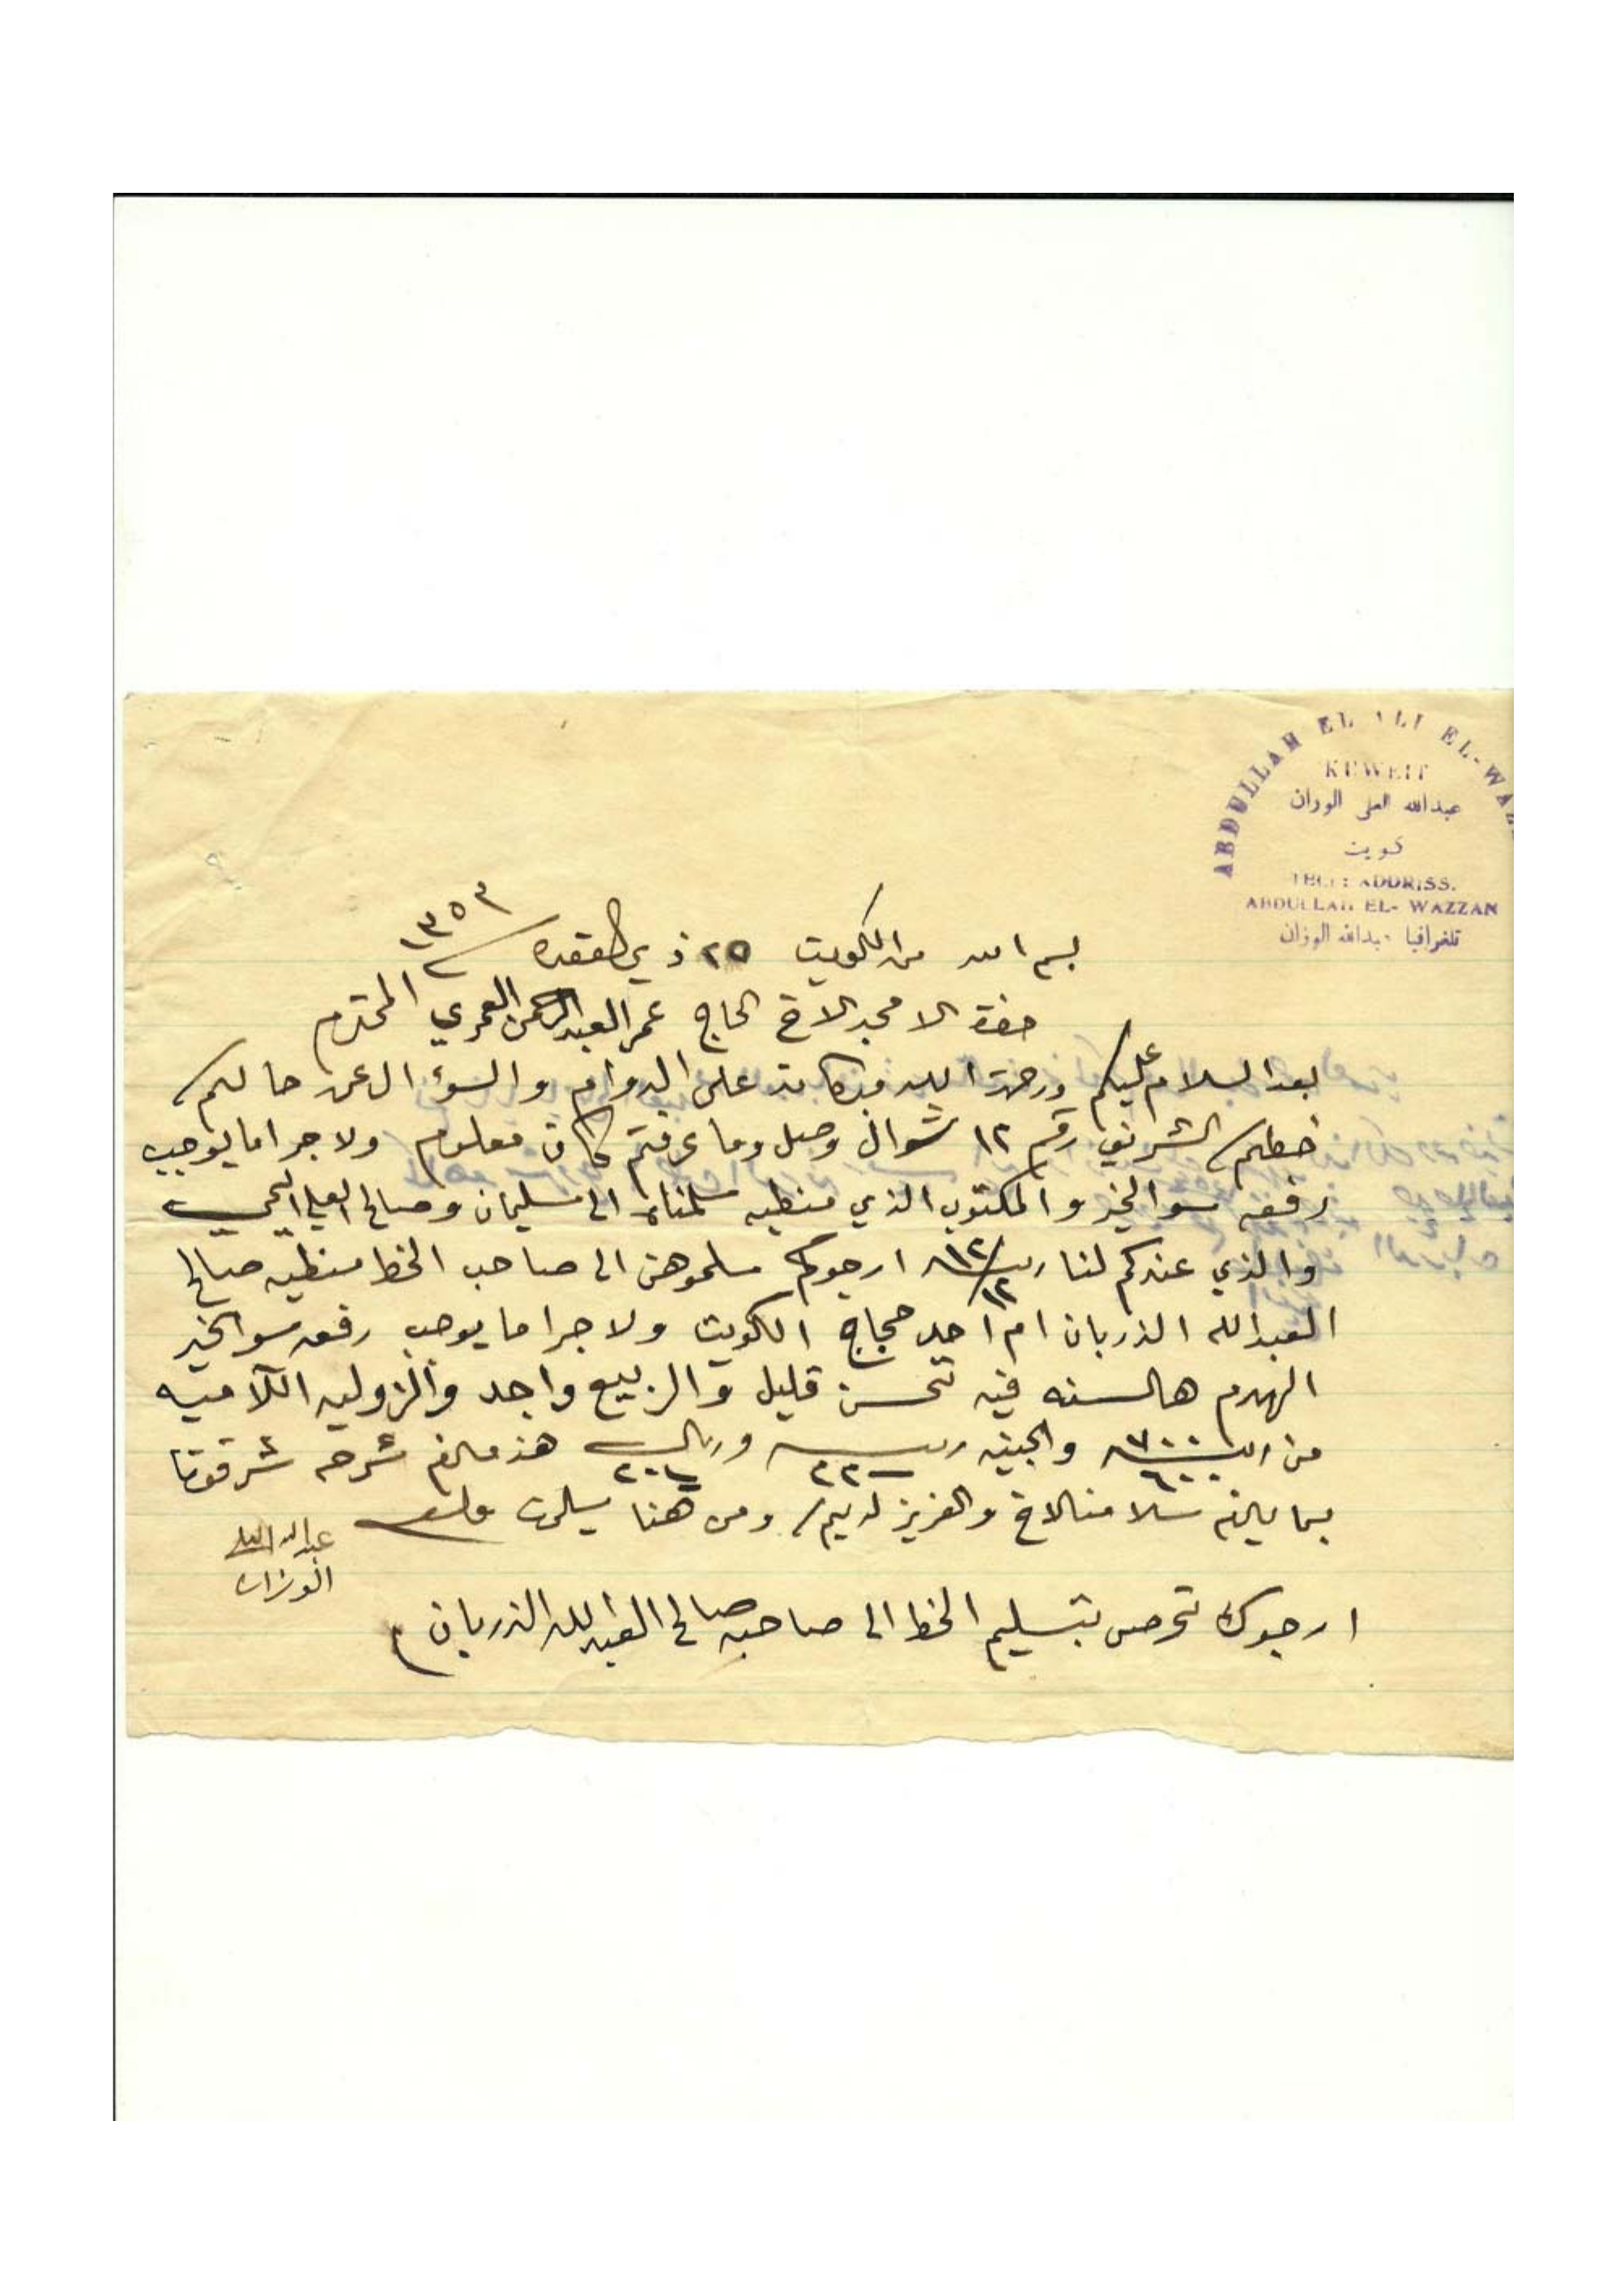 ABDULLAH EL ALI EL-WAZ
KUWEIT
عبدالله العلي الوزان
كويت
TELE: ADDRISS.
ABDULLAH EL- WAZZAN
تلغرافيا عبدالله الوزان
بسم الله من الكويت ٢٥ ذي القعده ١٣٥٣
حضرة الامجد الاخ الحاج عمر العبدالرحمن العمري المحترم
بعد السلام عليكم ورحمة الله وبركاته على الدوام والسوءال عن حالكم
خطكم الشريف رقم ١٢ شوال وصل وما عرفتم كان معلوم ولا جرا ما يوجب
رفعه سوا الخير والمكتوب الذي منطيه سلمناه الى سليمان وصالح العلي
والذي عندكم لنا ارجوكم سلموهن الى صاحب الخط منطيه صالح
العبدالله الذربان ام احد حجاج الكويت ولا جرا ما يوجب رفعه سوا الخير
الهدم هالسنه فيه تحسن قليل والربيع واجد والزوليه
من ٧٠٠ ٦٠٠ والجنيه وريال هذ مالزم شرحه شرفونا
بما يلزم سلامنا الاخ والعزيز لديكم ومن هنا يسلمون
عبدالله العلي
الوزان
ارجوك تحرص بتسليم الخط الى صاحبه صالح العبدالله الذربان